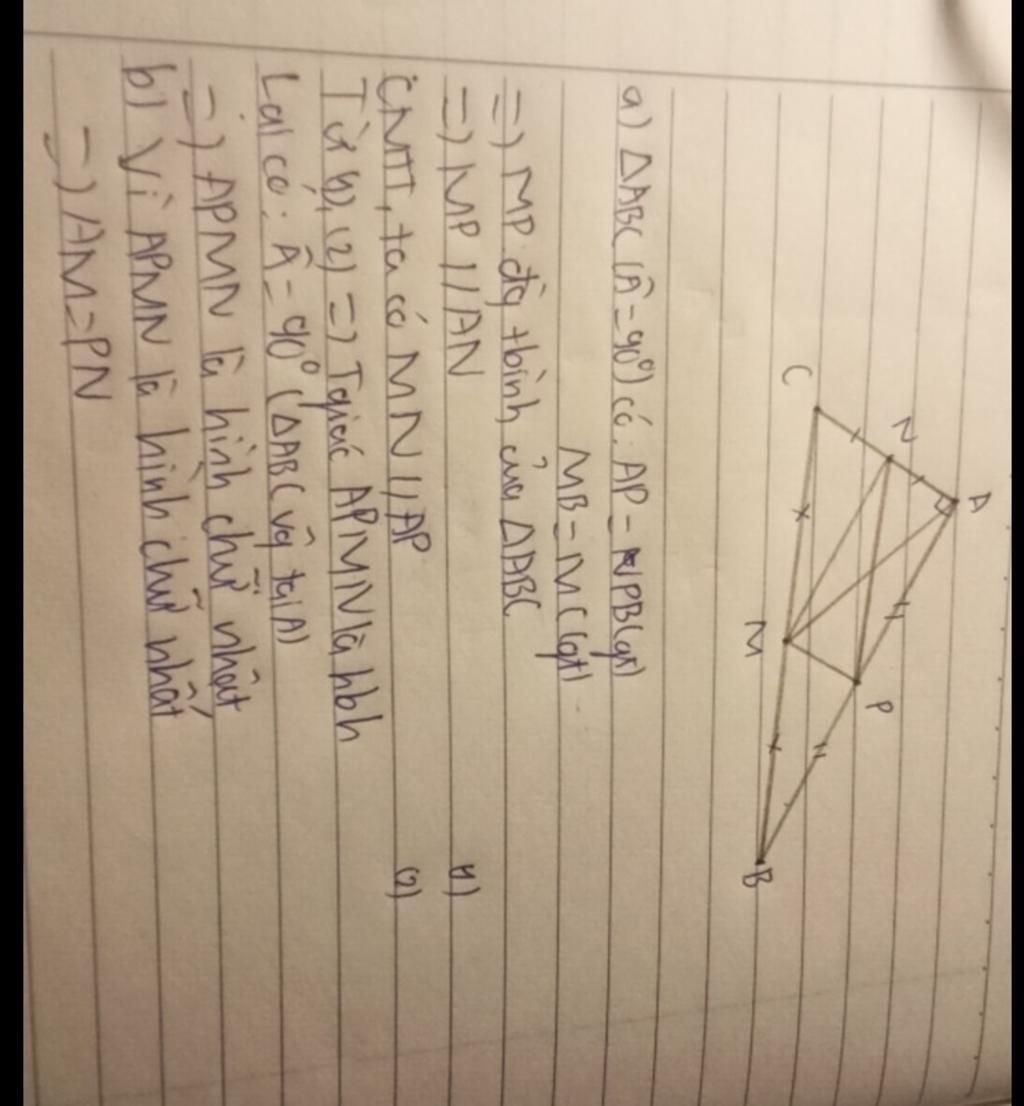 A
N
P
C
M
B
a) ΔABC (Â=90°) có: AP = PB(gt)
MB=MC(gt)
=) MP đg tbình của ΔABC
=) MP // AN (1)
CMTT, ta có MN // AP (2)
Từ (1), (2) =) Tgiác APMN là hbh
Lại có: Â = 90° (ΔABC vg tại A)
=) APMN là hình chữ nhật
b) Vì APMN là hình chữ nhật
=) AM=PN